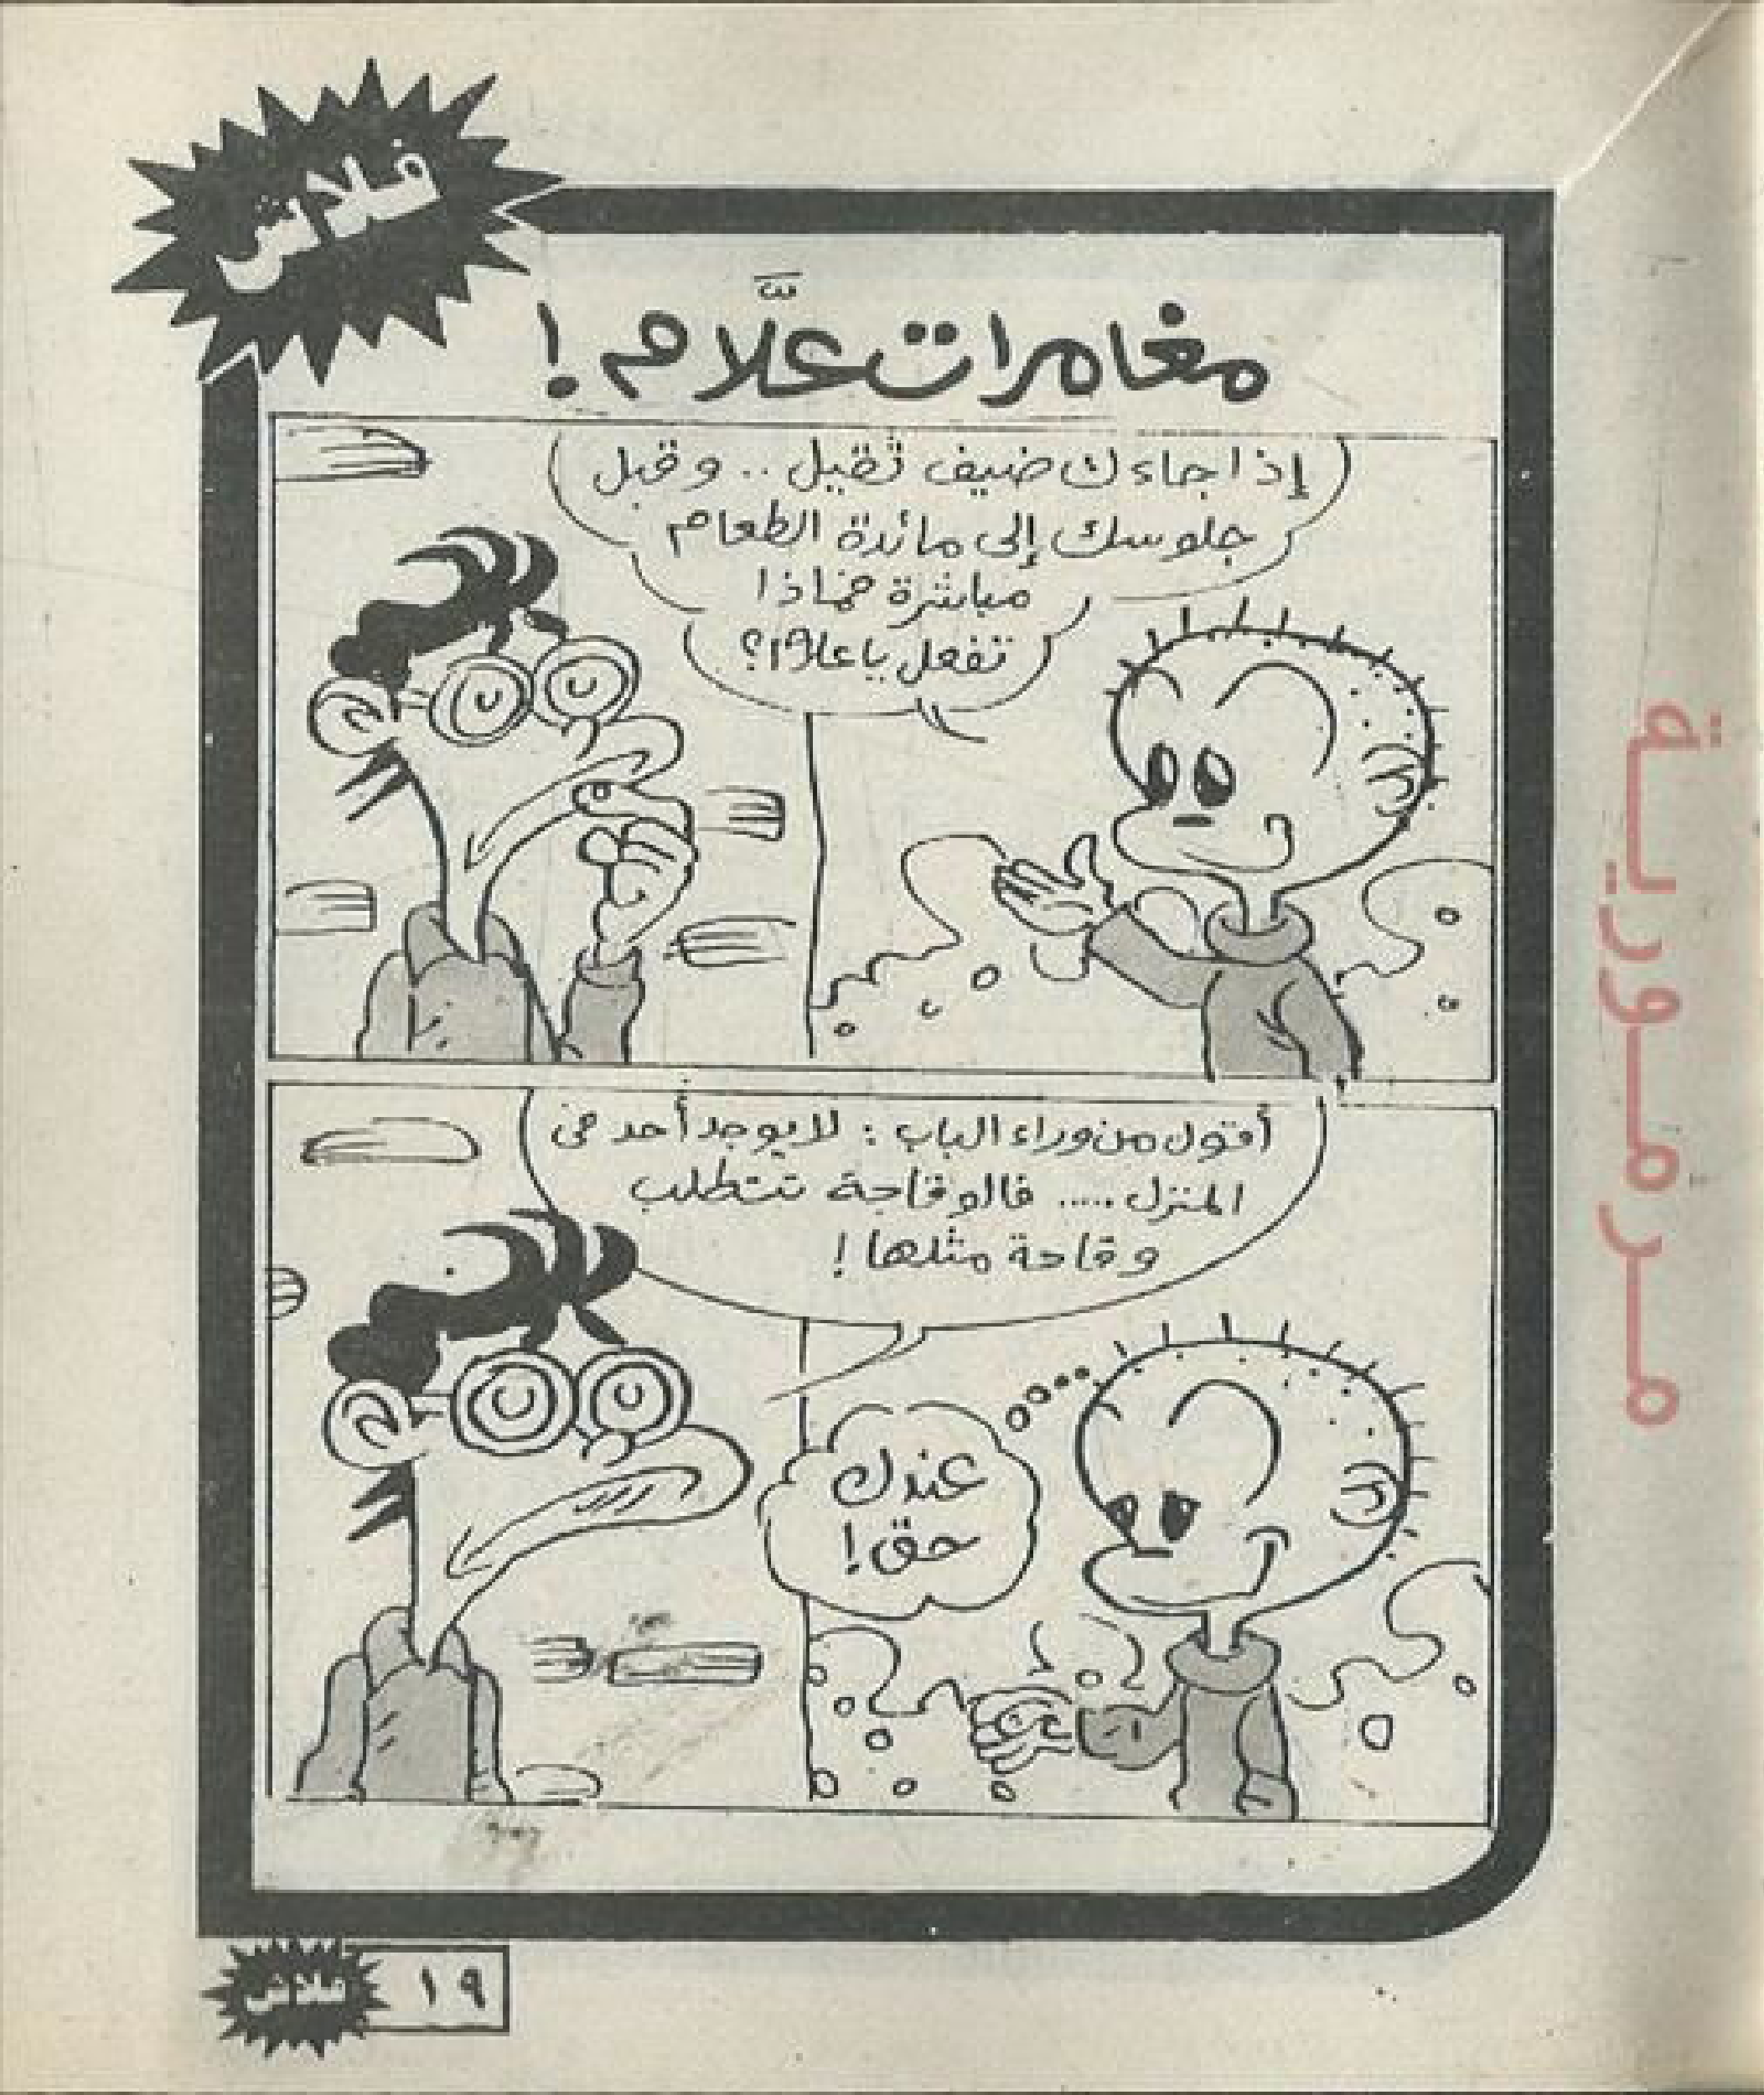 فلاش
مغامرات علَّام!
إذا جاءك ضيف ثقيل .. وقبل
جلوسك إلى مائدة الطعام
مباشرة فماذا
تفعل يا علام؟
أقول من وراء الباب : لا يوجد أحد فى
المنزل ..... فالوقاحة تتطلب
وقاحة مثلها !
عندك
حق !
مرمورية
فلاش ١٩